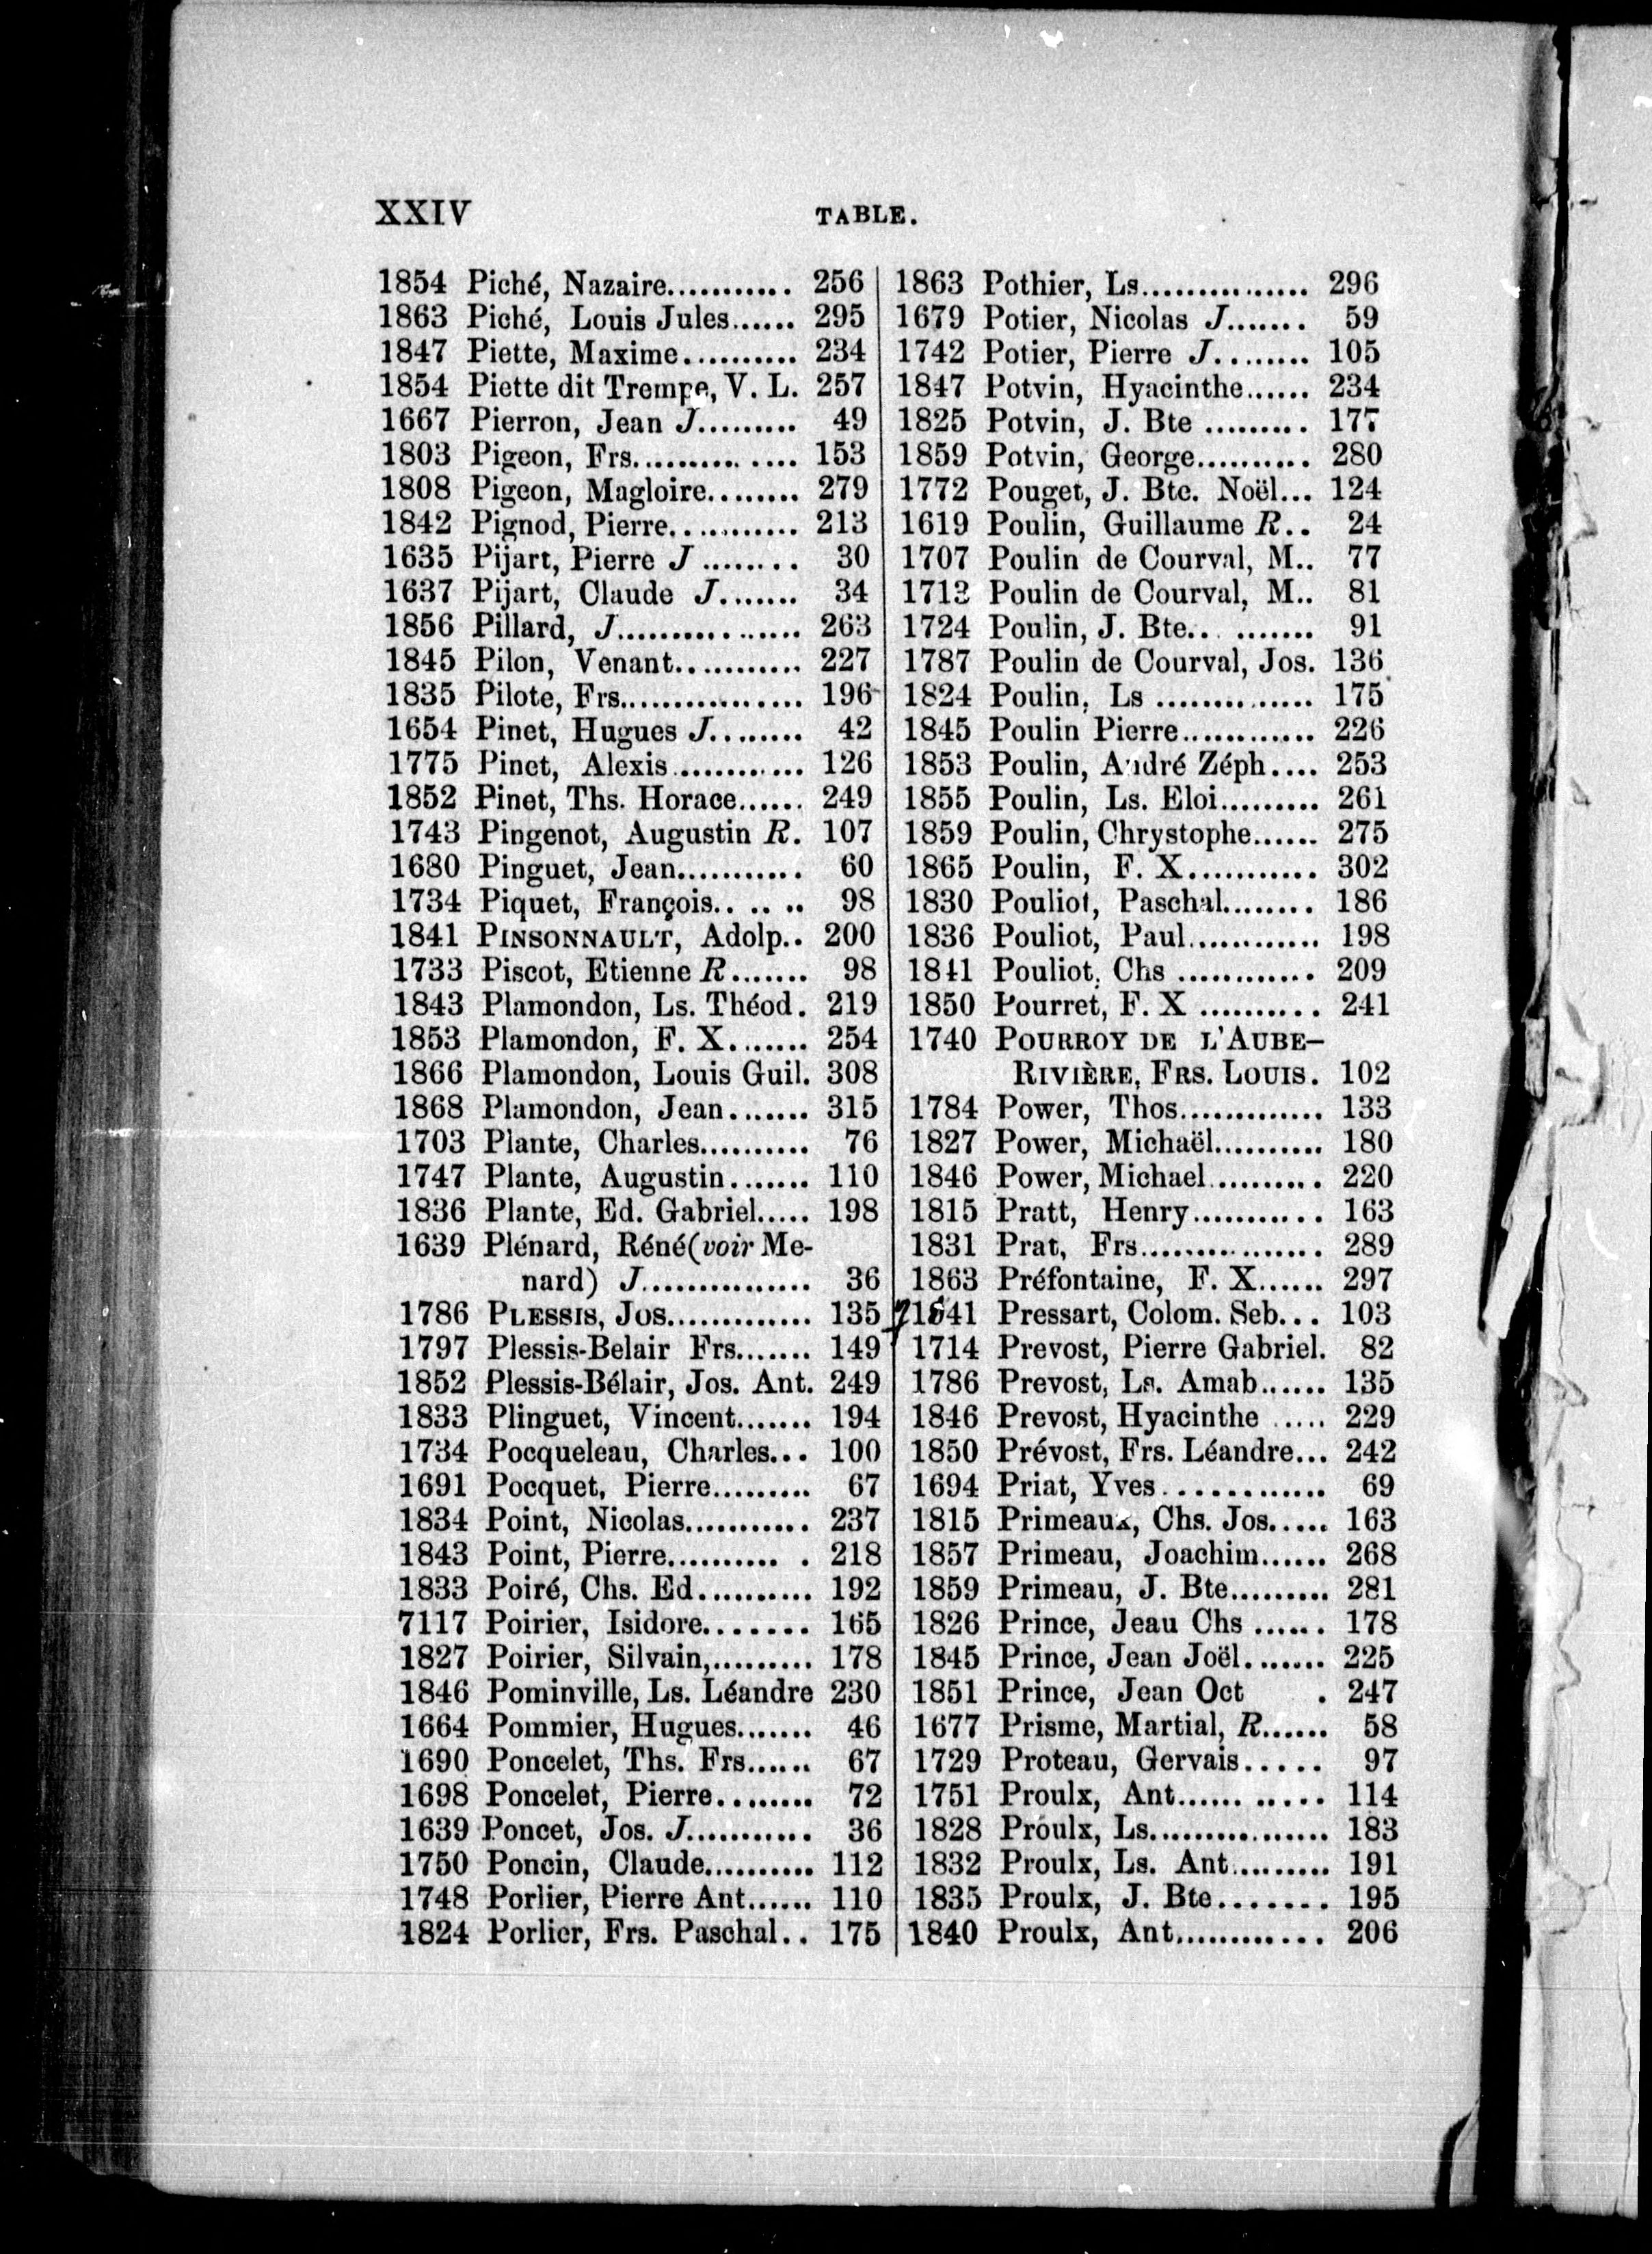 XXIV TABLE.
1854 Piché, Nazaire........... 256
1863 Piché, Louis Jules...... 295
1847 Piette, Maxime.......... 234
1854 Piette dit Trempe, V. L. 257
1667 Pierron, Jean J......... 49
1803 Pigeon, Frs.............. 153
1808 Pigeon, Magloire........ 279
1842 Pignod, Pierre........... 213
1635 Pijart, Pierre J ........ 30
1637 Pijart, Claude J....... 34
1856 Pillard, J................ 263
1845 Pilon, Venant........... 227
1835 Pilote, Frs................ 196
1654 Pinet, Hugues J........ 42
1775 Pinet, Alexis............ 126
1852 Pinet, Ths. Horace...... 249
1743 Pingenot, Augustin R. 107
1680 Pinguet, Jean........... 60
1734 Piquet, François.. .. .. 98
1841 PINSONNAULT, Adolp.. 200
1733 Piscot, Etienne R....... 98
1843 Plamondon, Ls. Théod. 219
1853 Plamondon, F. X....... 254
1866 Plamondon, Louis Guil. 308
1868 Plamondon, Jean....... 315
1703 Plante, Charles.......... 76
1747 Plante, Augustin....... 110
1836 Plante, Ed. Gabriel..... 198
1639 Plénard, Réné(voir Me-
nard) J............... 36
1786 PLESSIS, JOS............. 135
1797 Plessis-Belair Frs....... 149
1852 Plessis-Bélair, Jos. Ant. 249
1833 Plinguet, Vincent....... 194
1734 Pocqueleau, Charles... 100
1691 Pocquet, Pierre......... 67
1834 Point, Nicolas........... 237
1843 Point, Pierre.......... . 218
1833 Poiré, Chs. Ed.......... 192
7117 Poirier, Isidore....... 165
1827 Poirier, Silvain,......... 178
1846 Pominville, Ls. Léandre 230
1664 Pommier, Hugues....... 46
1690 Poncelet, Ths. Frs...... 67
1698 Poncelet, Pierre........ 72
1639 Poncet, Jos. J........... 36
1750 Poncin, Claude.......... 112
1748 Porlier, Pierre Ant...... 110
1824 Porlier, Frs. Paschal.. 175
1863 Pothier, Ls............... 296
1679 Potier, Nicolas J....... 59
1742 Potier, Pierre J........ 105
1847 Potvin, Hyacinthe...... 234
1825 Potvin, J. Bte ......... 177
1859 Potvin, George.......... 280
1772 Pouget, J. Bte. Noël... 124
1619 Poulin, Guillaume R.. 24
1707 Poulin de Courval, M.. 77
1713 Poulin de Courval, M.. 81
1724 Poulin, J. Bte.. ....... 91
1787 Poulin de Courval, Jos. 136
1824 Poulin, Ls .............. 175
1845 Poulin Pierre............ 226
1853 Poulin, André Zéph.... 253
1855 Poulin, Ls. Eloi......... 261
1859 Poulin, Chrystophe...... 275
1865 Poulin, F. X........... 302
1830 Pouliot, Paschal........ 186
1836 Pouliot, Paul............ 198
1841 Pouliot, Chs ............ 209
1850 Pourret, F. X .......... 241
1740 POURROY DE L'AUBE-
RIVIÈRE, FRS. LOUIS. 102
1784 Power, Thos............. 133
1827 Power, Michaël.......... 180
1846 Power, Michael.......... 220
1815 Pratt, Henry........... 163
1831 Prat, Frs................ 289
1863 Préfontaine, F. X...... 297
7 1841 Pressart, Colom. Seb... 103
1714 Prevost, Pierre Gabriel. 82
1786 Prevost, Ls. Amab...... 135
1846 Prevost, Hyacinthe ..... 229
1850 Prévost, Frs. Léandre... 242
1694 Priat, Yves............. 69
1815 Primeaux, Chs. Jos..... 163
1857 Primeau, Joachim...... 268
1859 Primeau, J. Bte......... 281
1826 Prince, Jeau Chs ...... 178
1845 Prince, Jean Joël....... 225
1851 Prince, Jean Oct . 247
1677 Prisme, Martial, R...... 58
1729 Proteau, Gervais..... 97
1751 Proulx, Ant...... ..... 114
1828 Proulx, Ls................ 183
1832 Proulx, Ls. Ant......... 191
1835 Proulx, J. Bte....... 195
1840 Proulx, Ant............ 206